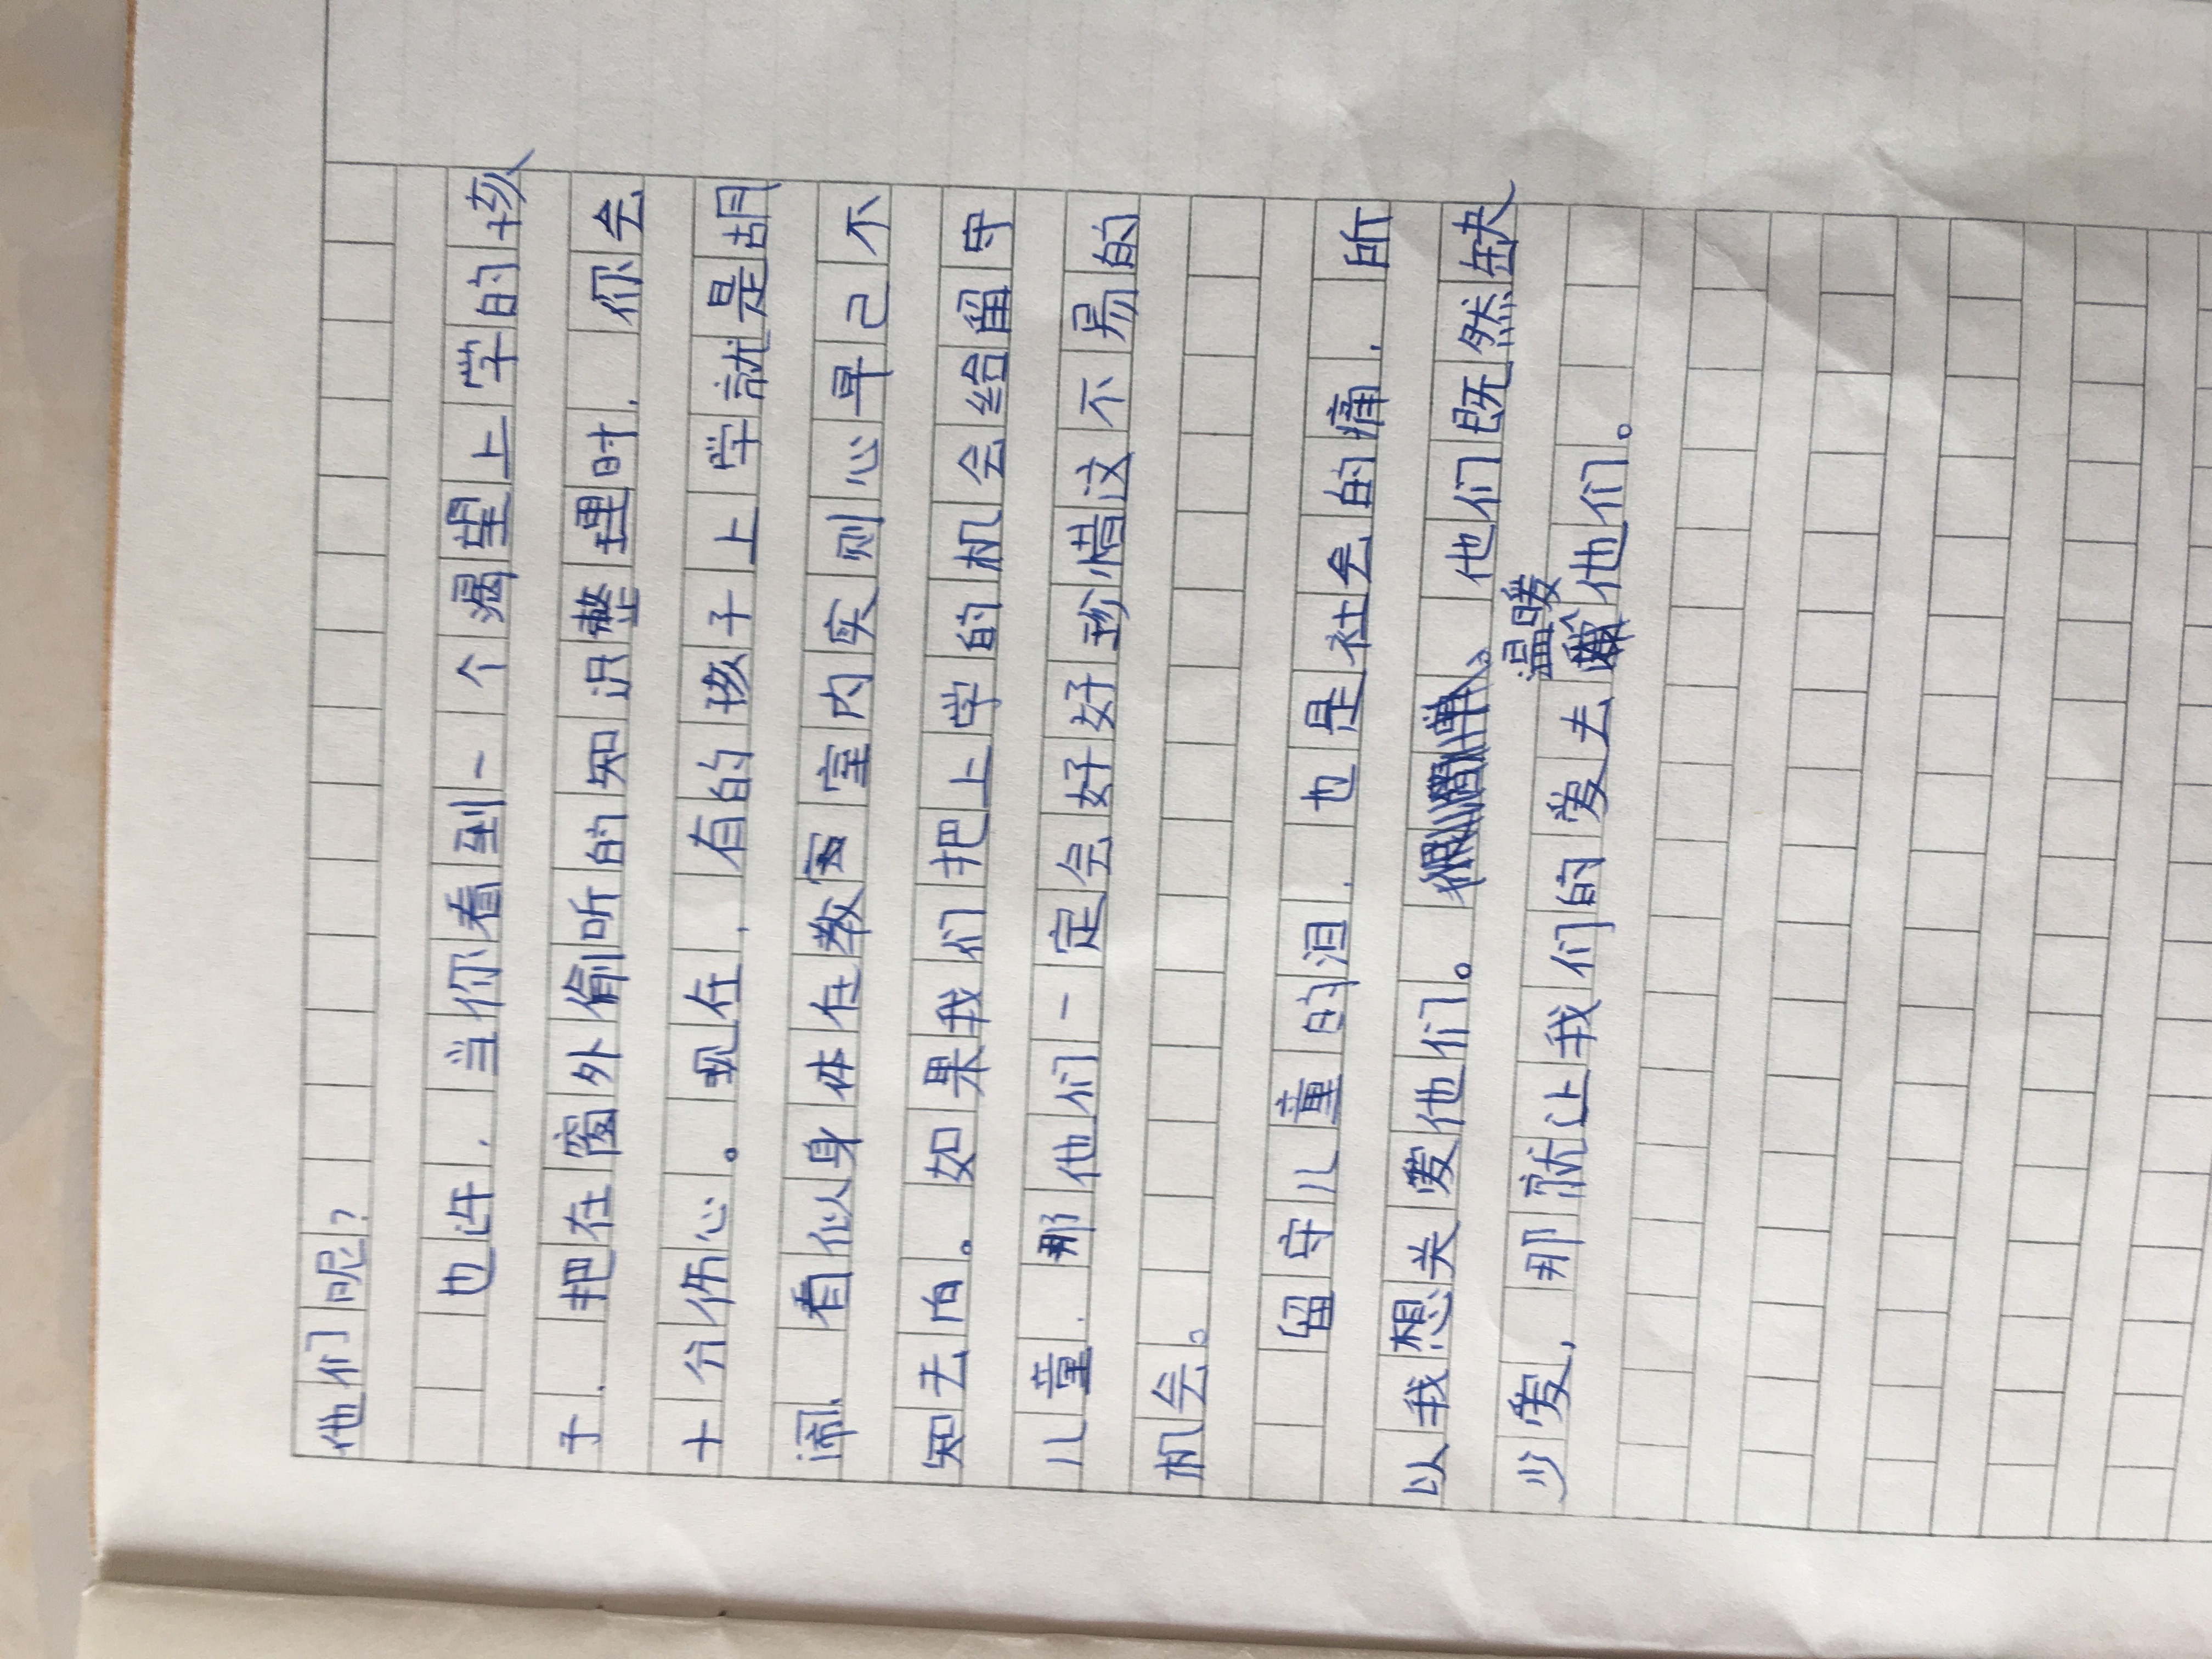 他们呢?
也许,当你看到一个渴望上学的孩
子,把在窗外偷听的知识整理时,你会
十分伤心。现在,有的孩子上学就是胡
闹、看似身体在教室室内实则心早己不
知去向。如果我们把上学的机会给留守
儿童,那他们一定会好好珍惜这不易的
机会。
留守儿童的泪,也是社会的痛,所
以我想关爱他们。他们既然缺
少爱,那就让我们的爱去温暖他们。